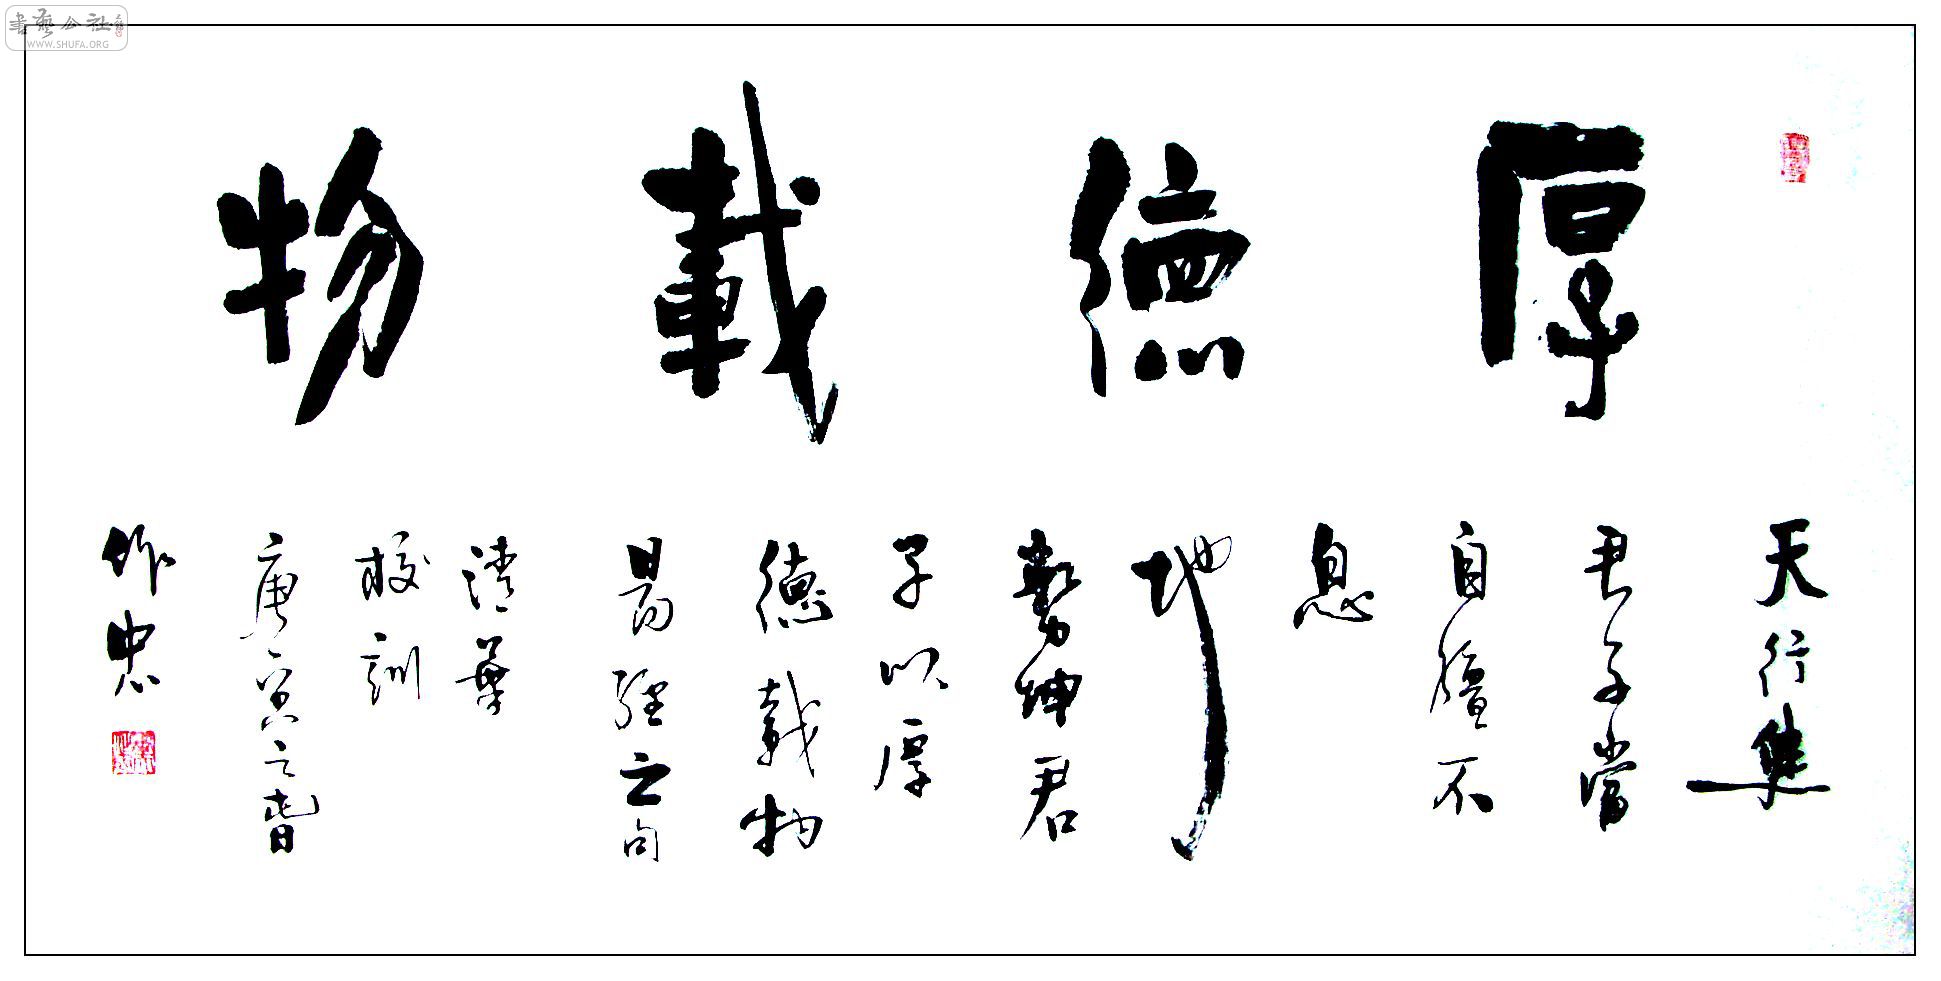 厚德載物
天行健
君子當
自彊不
息
地
勢坤君
子以厚
德載物
易經之句
清華
校訓
庚寅之春
作忠
書藝公社
WWW.SHUFA.ORG